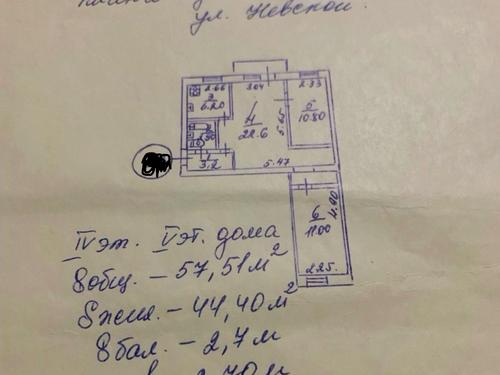 ул. Невской.
2.66 3.04 2.33
3
6.20
4
22.6
5.65
5
10.80
2
1
3.2
5.47
6
11.00
4.90
2.25.
IV эт. V эт. дома
Sобщ. - 57,51 м²
Sжил. - 44,40 м²
Sбал. - 2,7 м